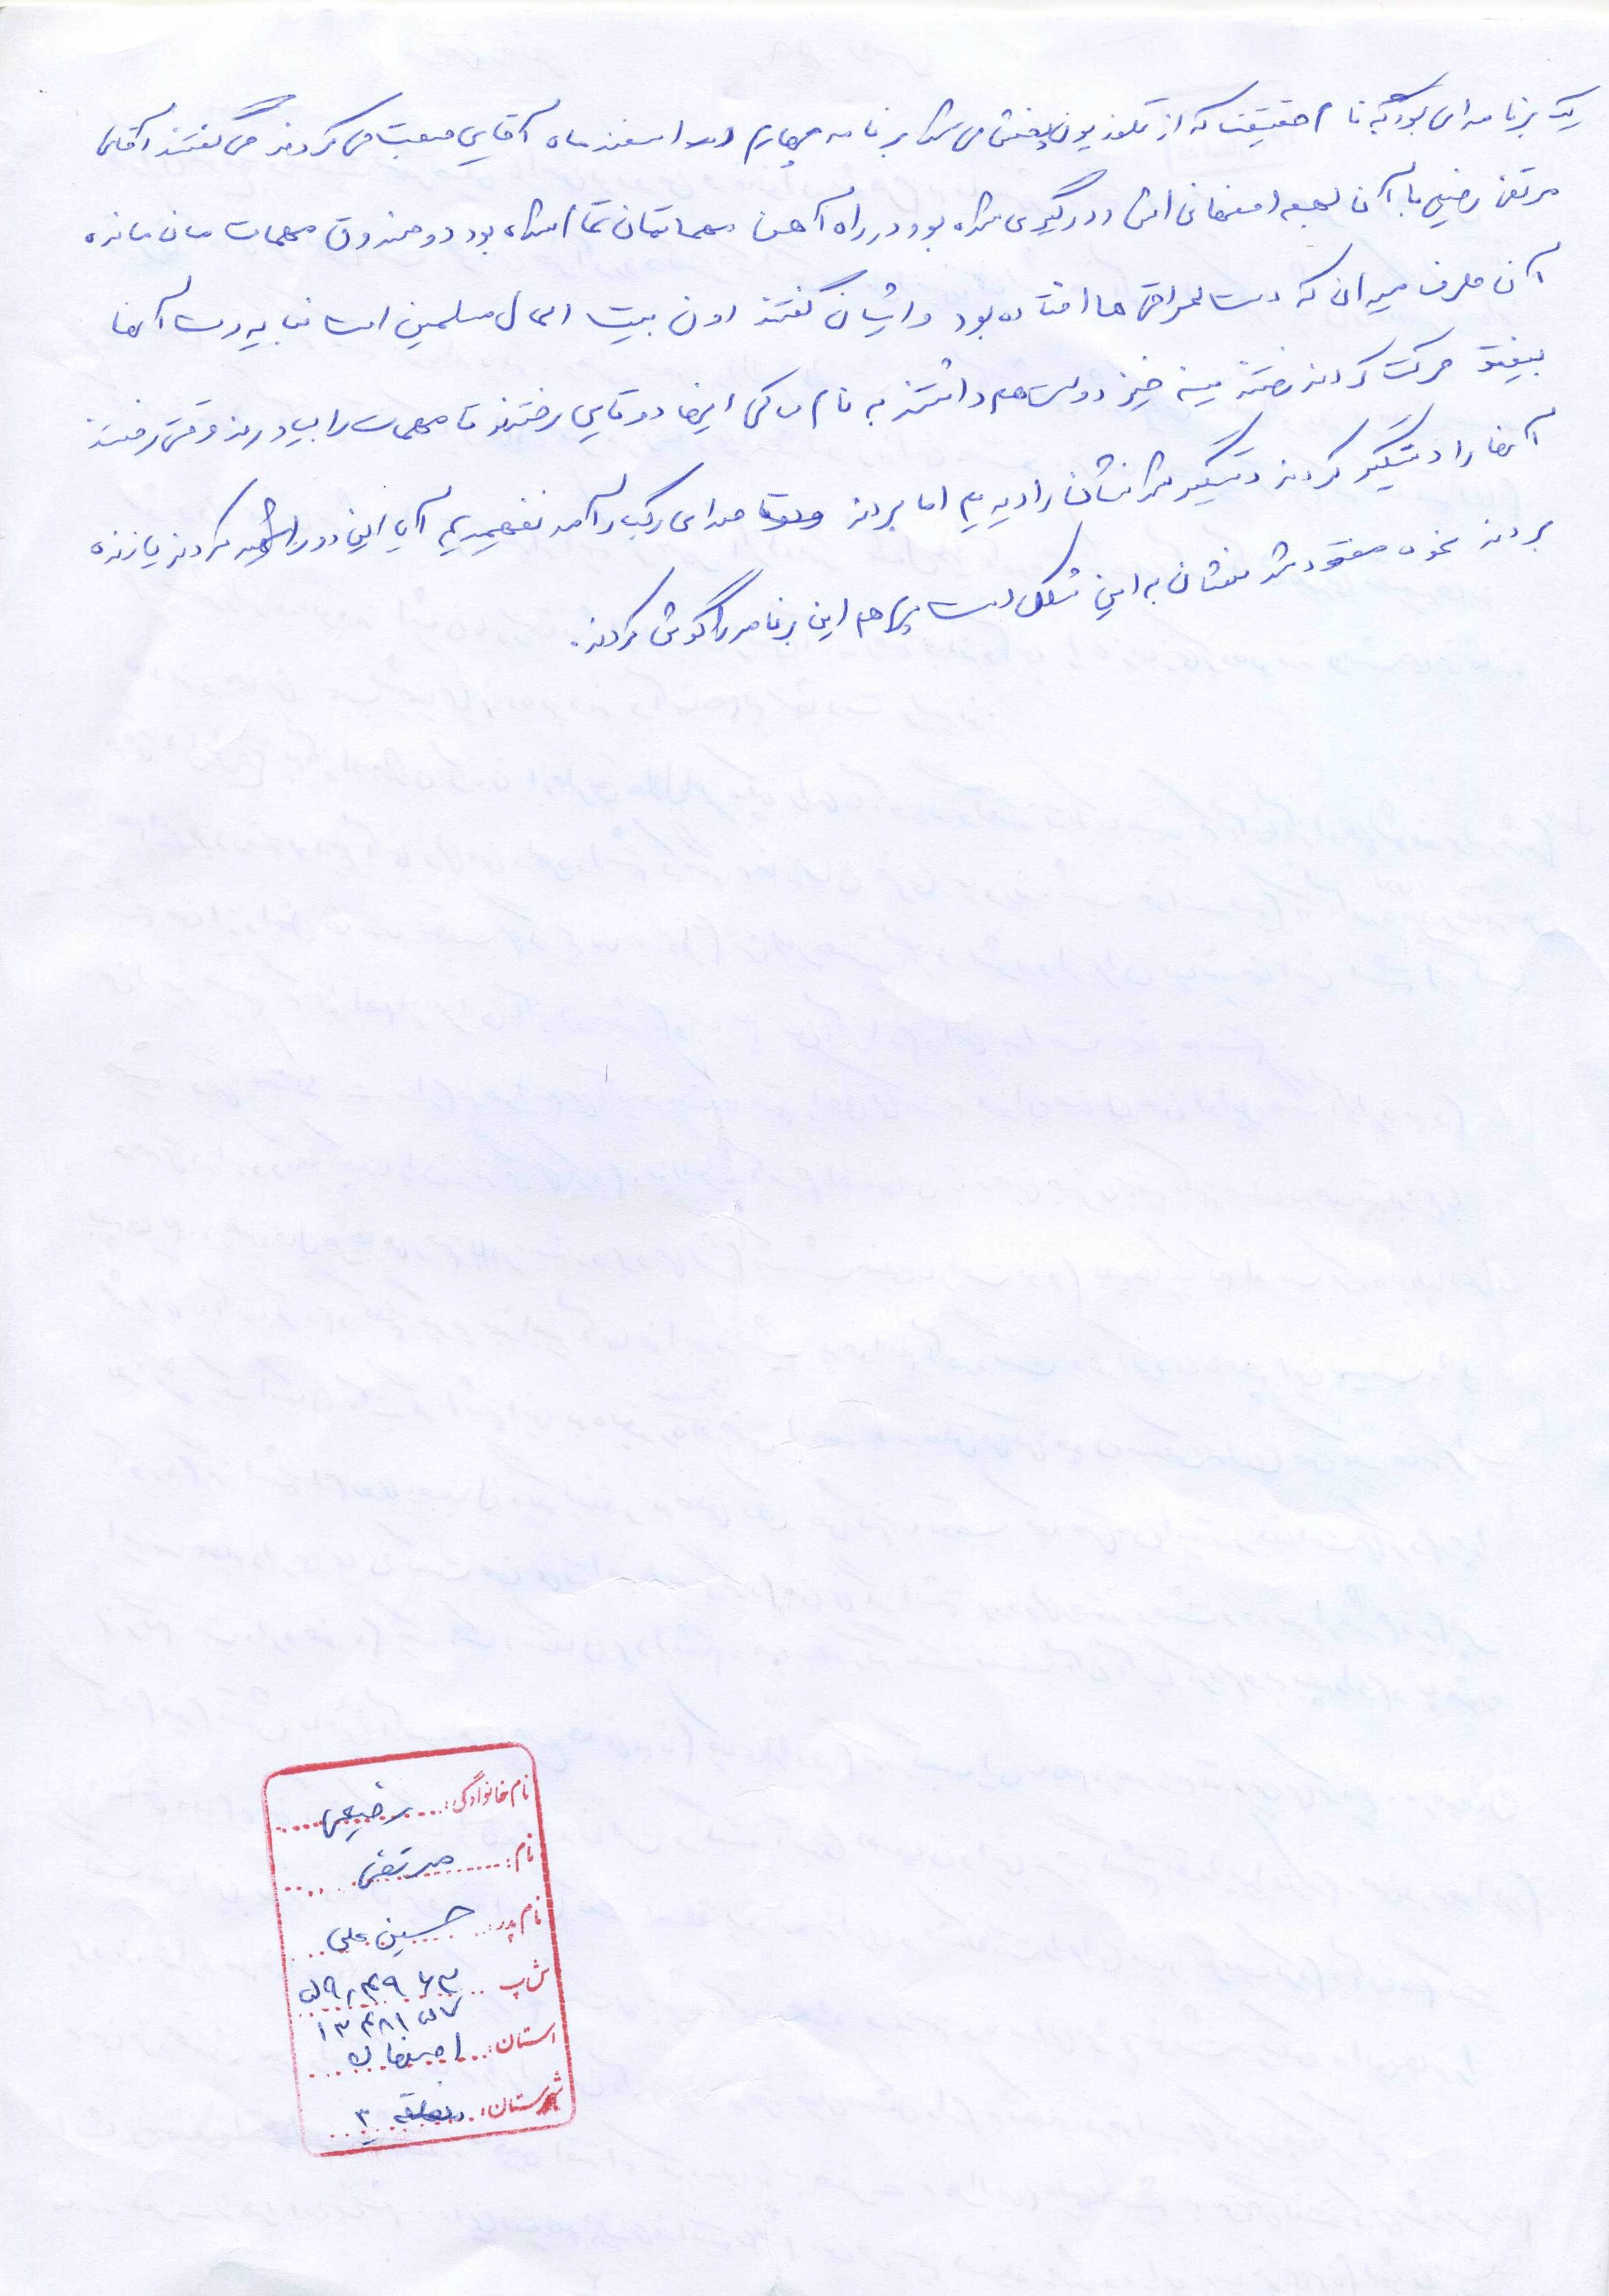 یک برنامه ای بود به نام حقیقت که از تلویزیون پخش می شد برنامه چهارم اسفند ماه آقایی صحبت می کردند می گفتند آقای
مرتضی رفیعی با آن لهجه اصفهانی اش در درگیری شده بود در راه آهن مهماتمان تمام شده بود دو صندوق مهمات مان مانده
آن طرف میدان که دست عراقی ها افتاده بود و ایشان گفتند اون بیت المال مسلمین است نباید دست آنها
بیفتد حرکت کردند رفتند سینه خیز دوست هم داشتند به نام اینها دوتایی رفتند تا مهمات را بیاورند وقتی رفتند
آنها را دستگیر کردند دستگیر شدنشان را دیدیم اما بردند صدای رگبار آمد نفهمیدیم آیا این دو را شهید کردند یا زنده
بردند نحوه مفقود شدنشان به این شکل است هم این برنامه را گوش کردند.
نام خانوادگی: رفیعی
نام: مرتضی
نام پدر: حسین علی
ش پ
۱۳۴۸۱۵۷
استان: اصفهان
شهرستان: منطقه ۳